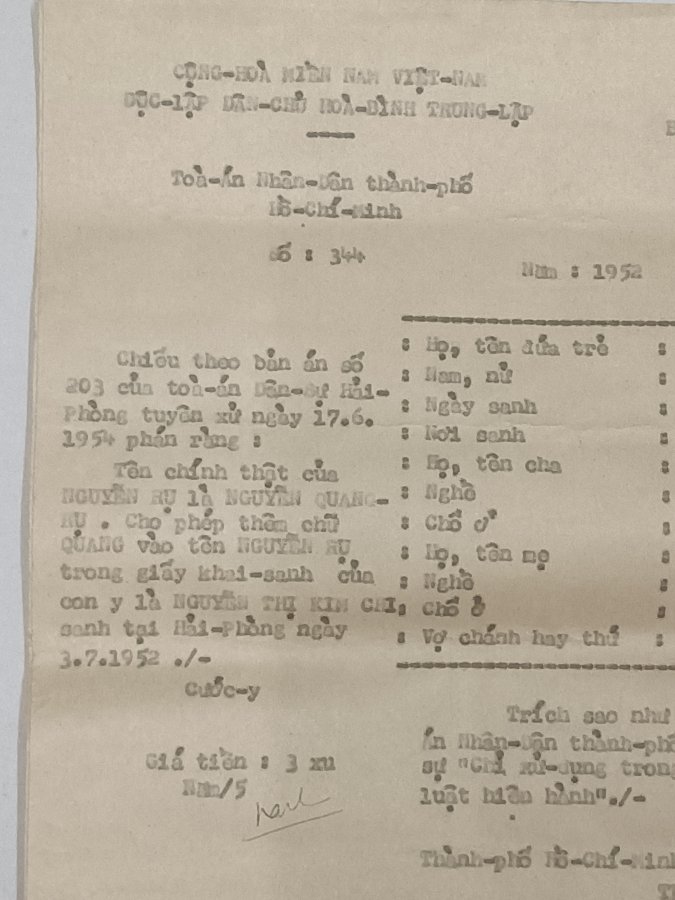 CỘNG-HOÀ MIỀN NAM VIỆT-NAM
ĐỘC-LẬP DÂN-CHỦ HOÀ-BÌNH TRUNG-LẬP
Toà-Án Nhân-Dân thành-phố
Hồ-Chí-Minh
Số : 344
Năm : 1952
Chiếu theo bản án số
203 của toà-án Dân-Sự Hải-
Phòng tuyên xử ngày 17.6.
1954 phán rằng :
Tên chính thật của
NGUYỄN RỤ là NGUYỄN QUANG-
RỤ . Cho phép thêm chữ
QUANG vào tên NGUYỄN RỤ
trong giấy khai-sanh của
con y là NGUYỄN THỊ KIM CHI,
sanh tại Hải-Phòng ngày
3.7.1952 ./-
Cước-y
Giá tiền : 3 xu
Năm/5
: Họ, tên đứa trẻ :
: Nam, nữ :
: Ngày sanh :
: Nơi sanh :
: Họ, tên cha :
: Nghề :
: Chổ ở :
: Họ, tên mẹ :
: Nghề :
: Chổ ở :
: Vợ chánh hay thứ :
Trích sao như
Án Nhân-Dân thành-phố
sự "Chỉ xử-dụng trong
luật hiện hành"./-
Thành-phố Hồ-Chí-Minh